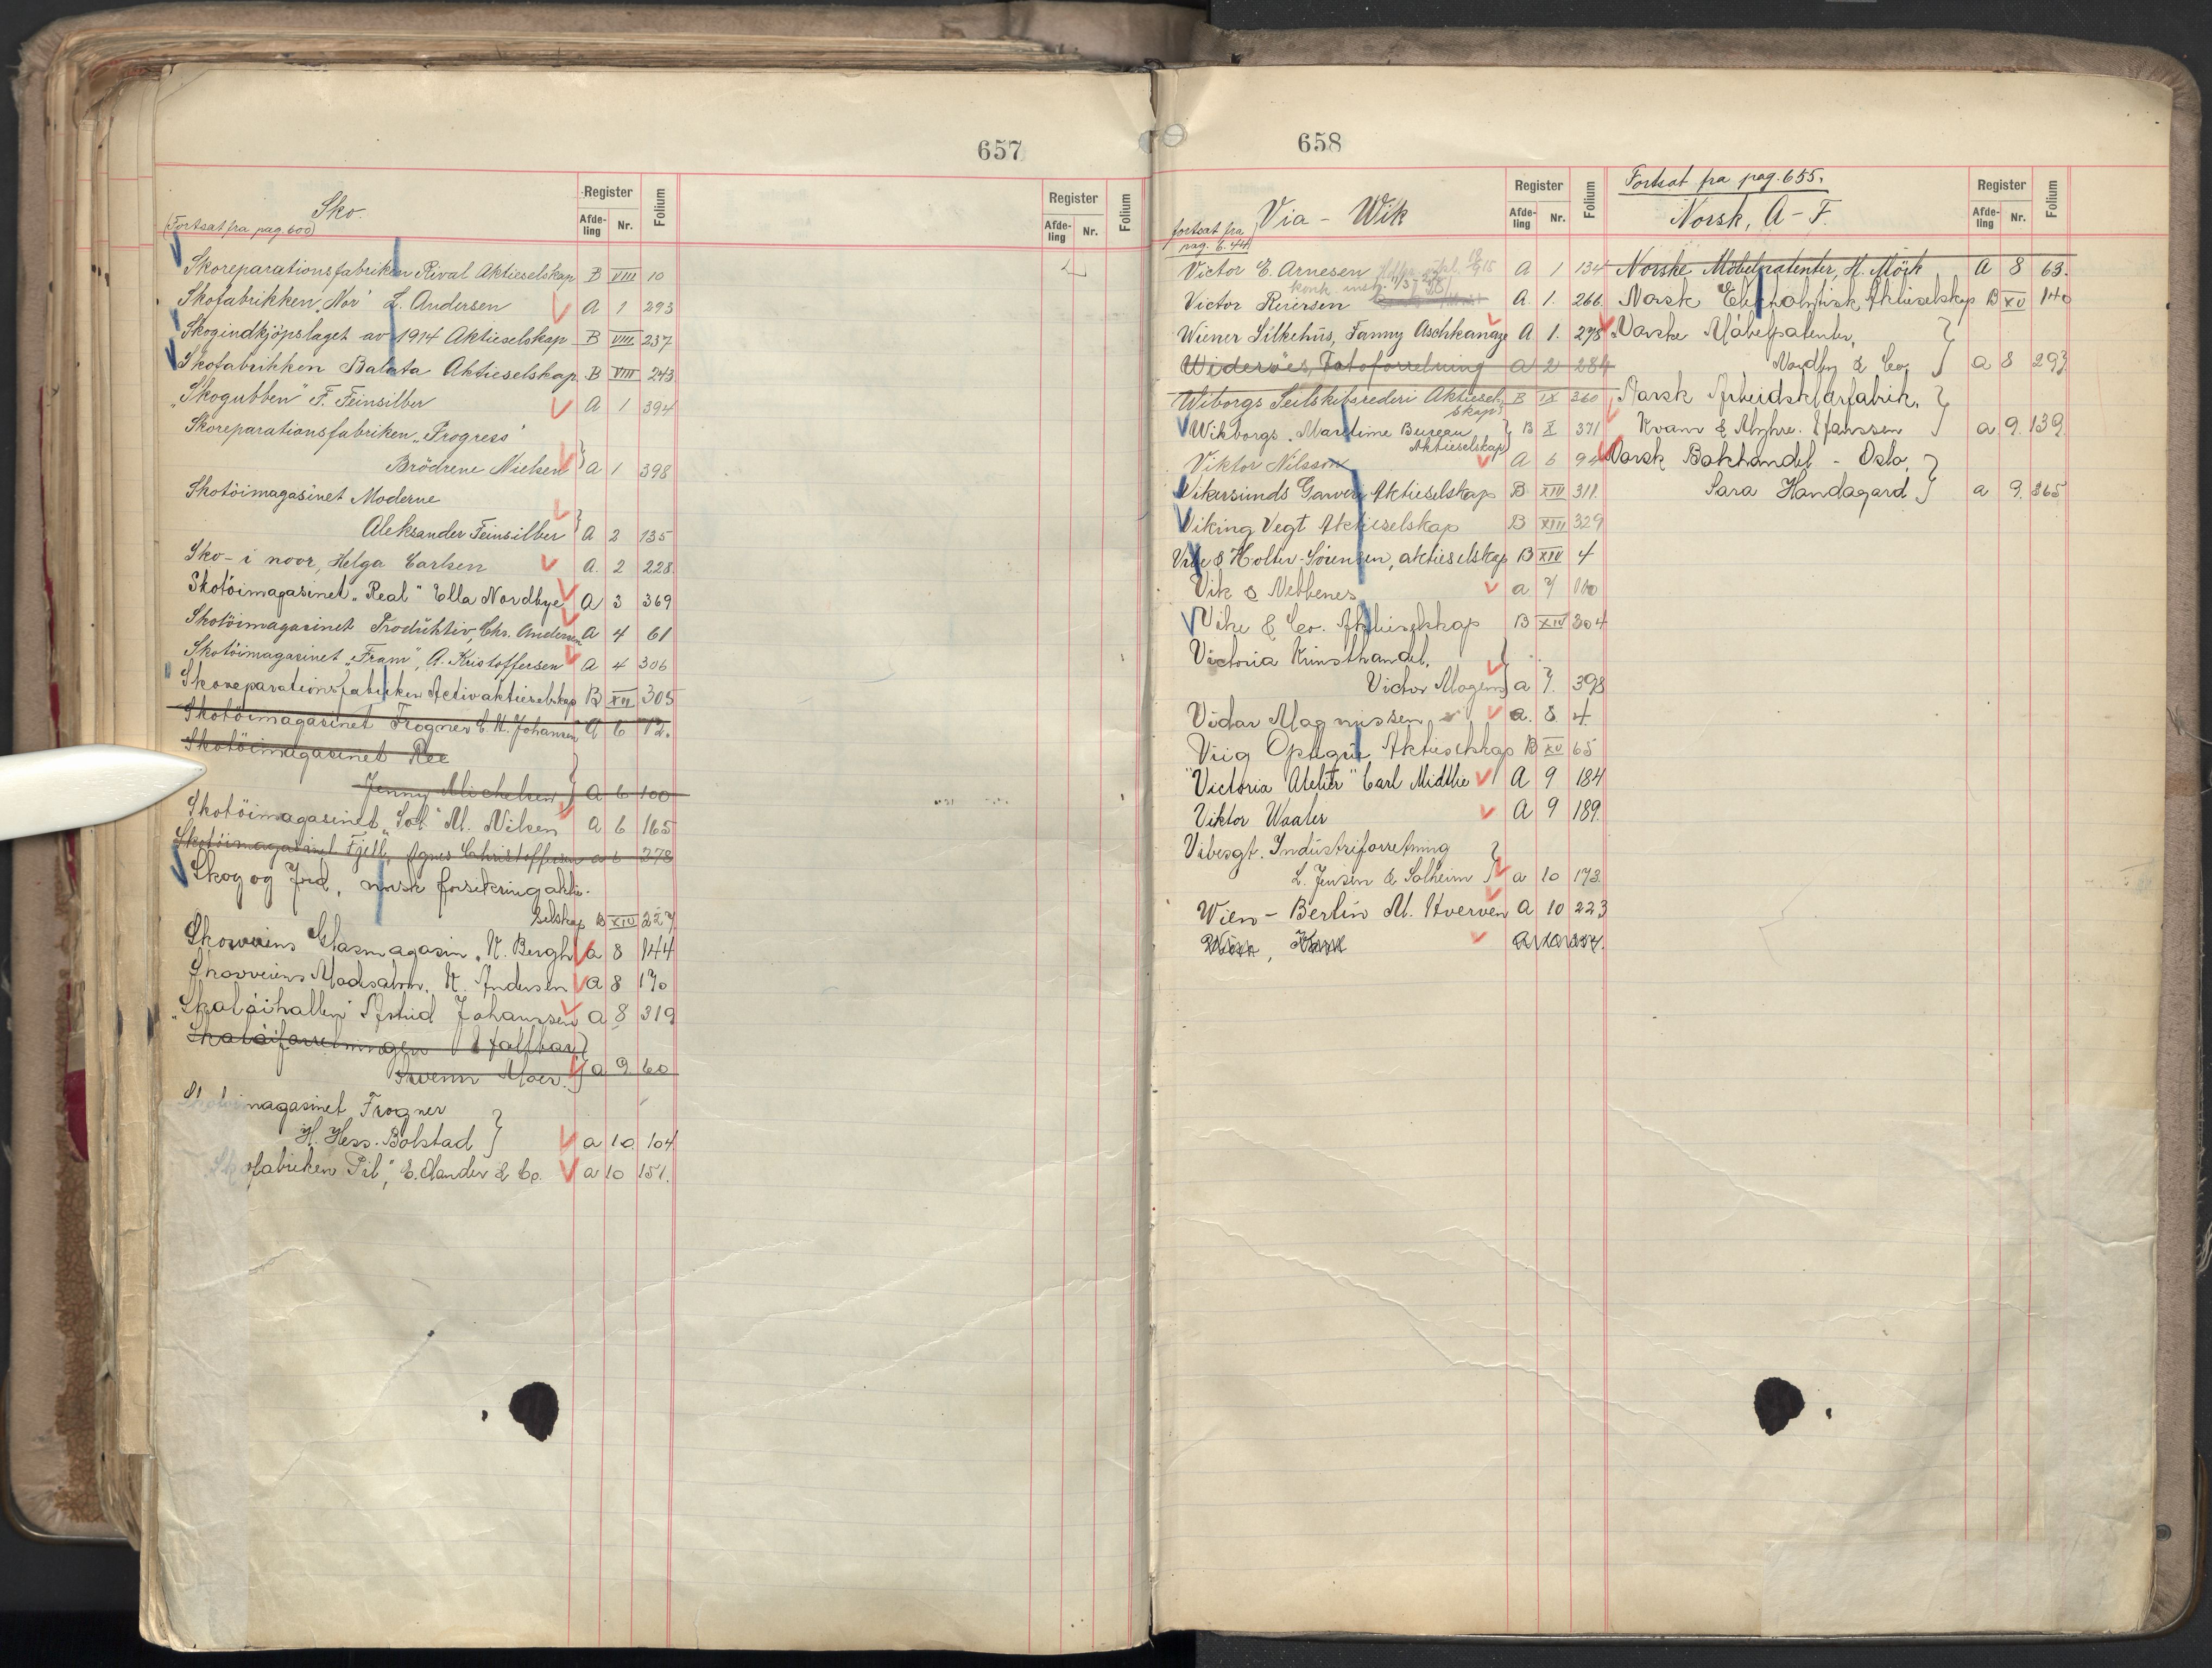 657
Register
Folium
Afde-ling
Nr.
Register
Folium
Afde-ling
Nr.
Sko.
(Fortsat fra pag. 600)
Skoreparationsfabriken Rival Aktieselskap B VIII 10
Skofabrikken „Nor" L. Andersen A 1 293
Skogindkjöpslaget av 1914 Aktieselskap B VIII 237
Skofabrikken Balata Aktieselskap B VIII 243
„Skogubben" F. Feinsilber A 1 394
Skoreparationsfabriken „Progress"
Brödrene Nielsen A 1 398
Skotöimagasinet Moderne
Aleksander Feinsilber A 2 135
Sko- i noor, Helga Carlsen A. 2 228
Skotöimagasinet „Real" Ella Nordbye A 3 369
Skotöimagasinet Produktiv, Chr. Andersen A 4 61
Skotöimagasinet „Fram", A. Kristoffersen A 4 306
Skoreparationsfabriken Activ aktieselskap B XII 305
Skotöimagasinet Frogner C. H. Johansen A 6 12.
Skotöimagasinet Rex
Jenny Michelsen A 6 100
Skotöimagasinet „Sol" M. Nilsen A 6 165
Skotöimagasinet Fjell, Agnes Christoffersen a 6 378
Skog og Jord, norsk forsikringaktie-
selskap B XIV 227
Skovveiens Glasmagasin, N. Bergh a 8 144
Skovveiens Modesalon, N. Andersen a 8 170
„Skotöihallen" Astrid Johanssen a 8 319
Skotöiforretningen
Svenn Moer. a 9 60
Skotöimagasinet Frogner
H. Hess-Bolstad a 10. 104.
Skofabriken „Pil", E. Nander & Co. a 10 151.
658
Register
Folium
Afde-ling
Nr.
Register
Folium
Afde-ling
Nr.
fortsat fra
pag. 644
Via - Wik
Victor E. Arnesen A 1 134
konk.
Victor Reiersen A. 1. 266
Wiener Silkehus, Fanny Aschkanaze A 1. 278
Widerøes Fotoforretning A 2 284
Wiborgs Seilskibsrederi Aktiesel-
skap B IX 360
Wikborgs Maritime Bureau
Aktieselskap B X 371
Viktor Nilsson A 6 94
Vikersunds Garveri Aktieselskap B XIV 311.
Viking Vegt Aktieselskap B XIII 329
& Holter-Sörensen, aktieselskap B XIV 4
Vik & Nebbenes a 7 110
Vike & Co. Aktieselskap B XIV 304
Victoria Kunsthandel,
Victor Mogens a 7. 398
Vidar Magnussen a. 8 4.
Viig Optegn Aktieselskap B XV 65
"Victoria Atelier" Carl Midtlie A 9 184
Viktor Waaler A 9 189.
Vibesgt. Industriforretning
L. Jensen & Solheim a 10 173.
Wien - Berlin M. Hverven A 10 223
Fortsat fra pag. 655.
Norsk, A - F.
Norske Möbelpatenter, H. Mörk A 8 63.
Norsk Elektrolytisk Aktieselskap B XV 140
Norske Möbelpatenter,
Nordby & Co. a 8 297
Norsk Arbeidsklærfabrik,
Kvam & Myhre. Hanssen a 9. 139
Norsk Bokhandel - Oslo,
Sara Handagard a 9. 365